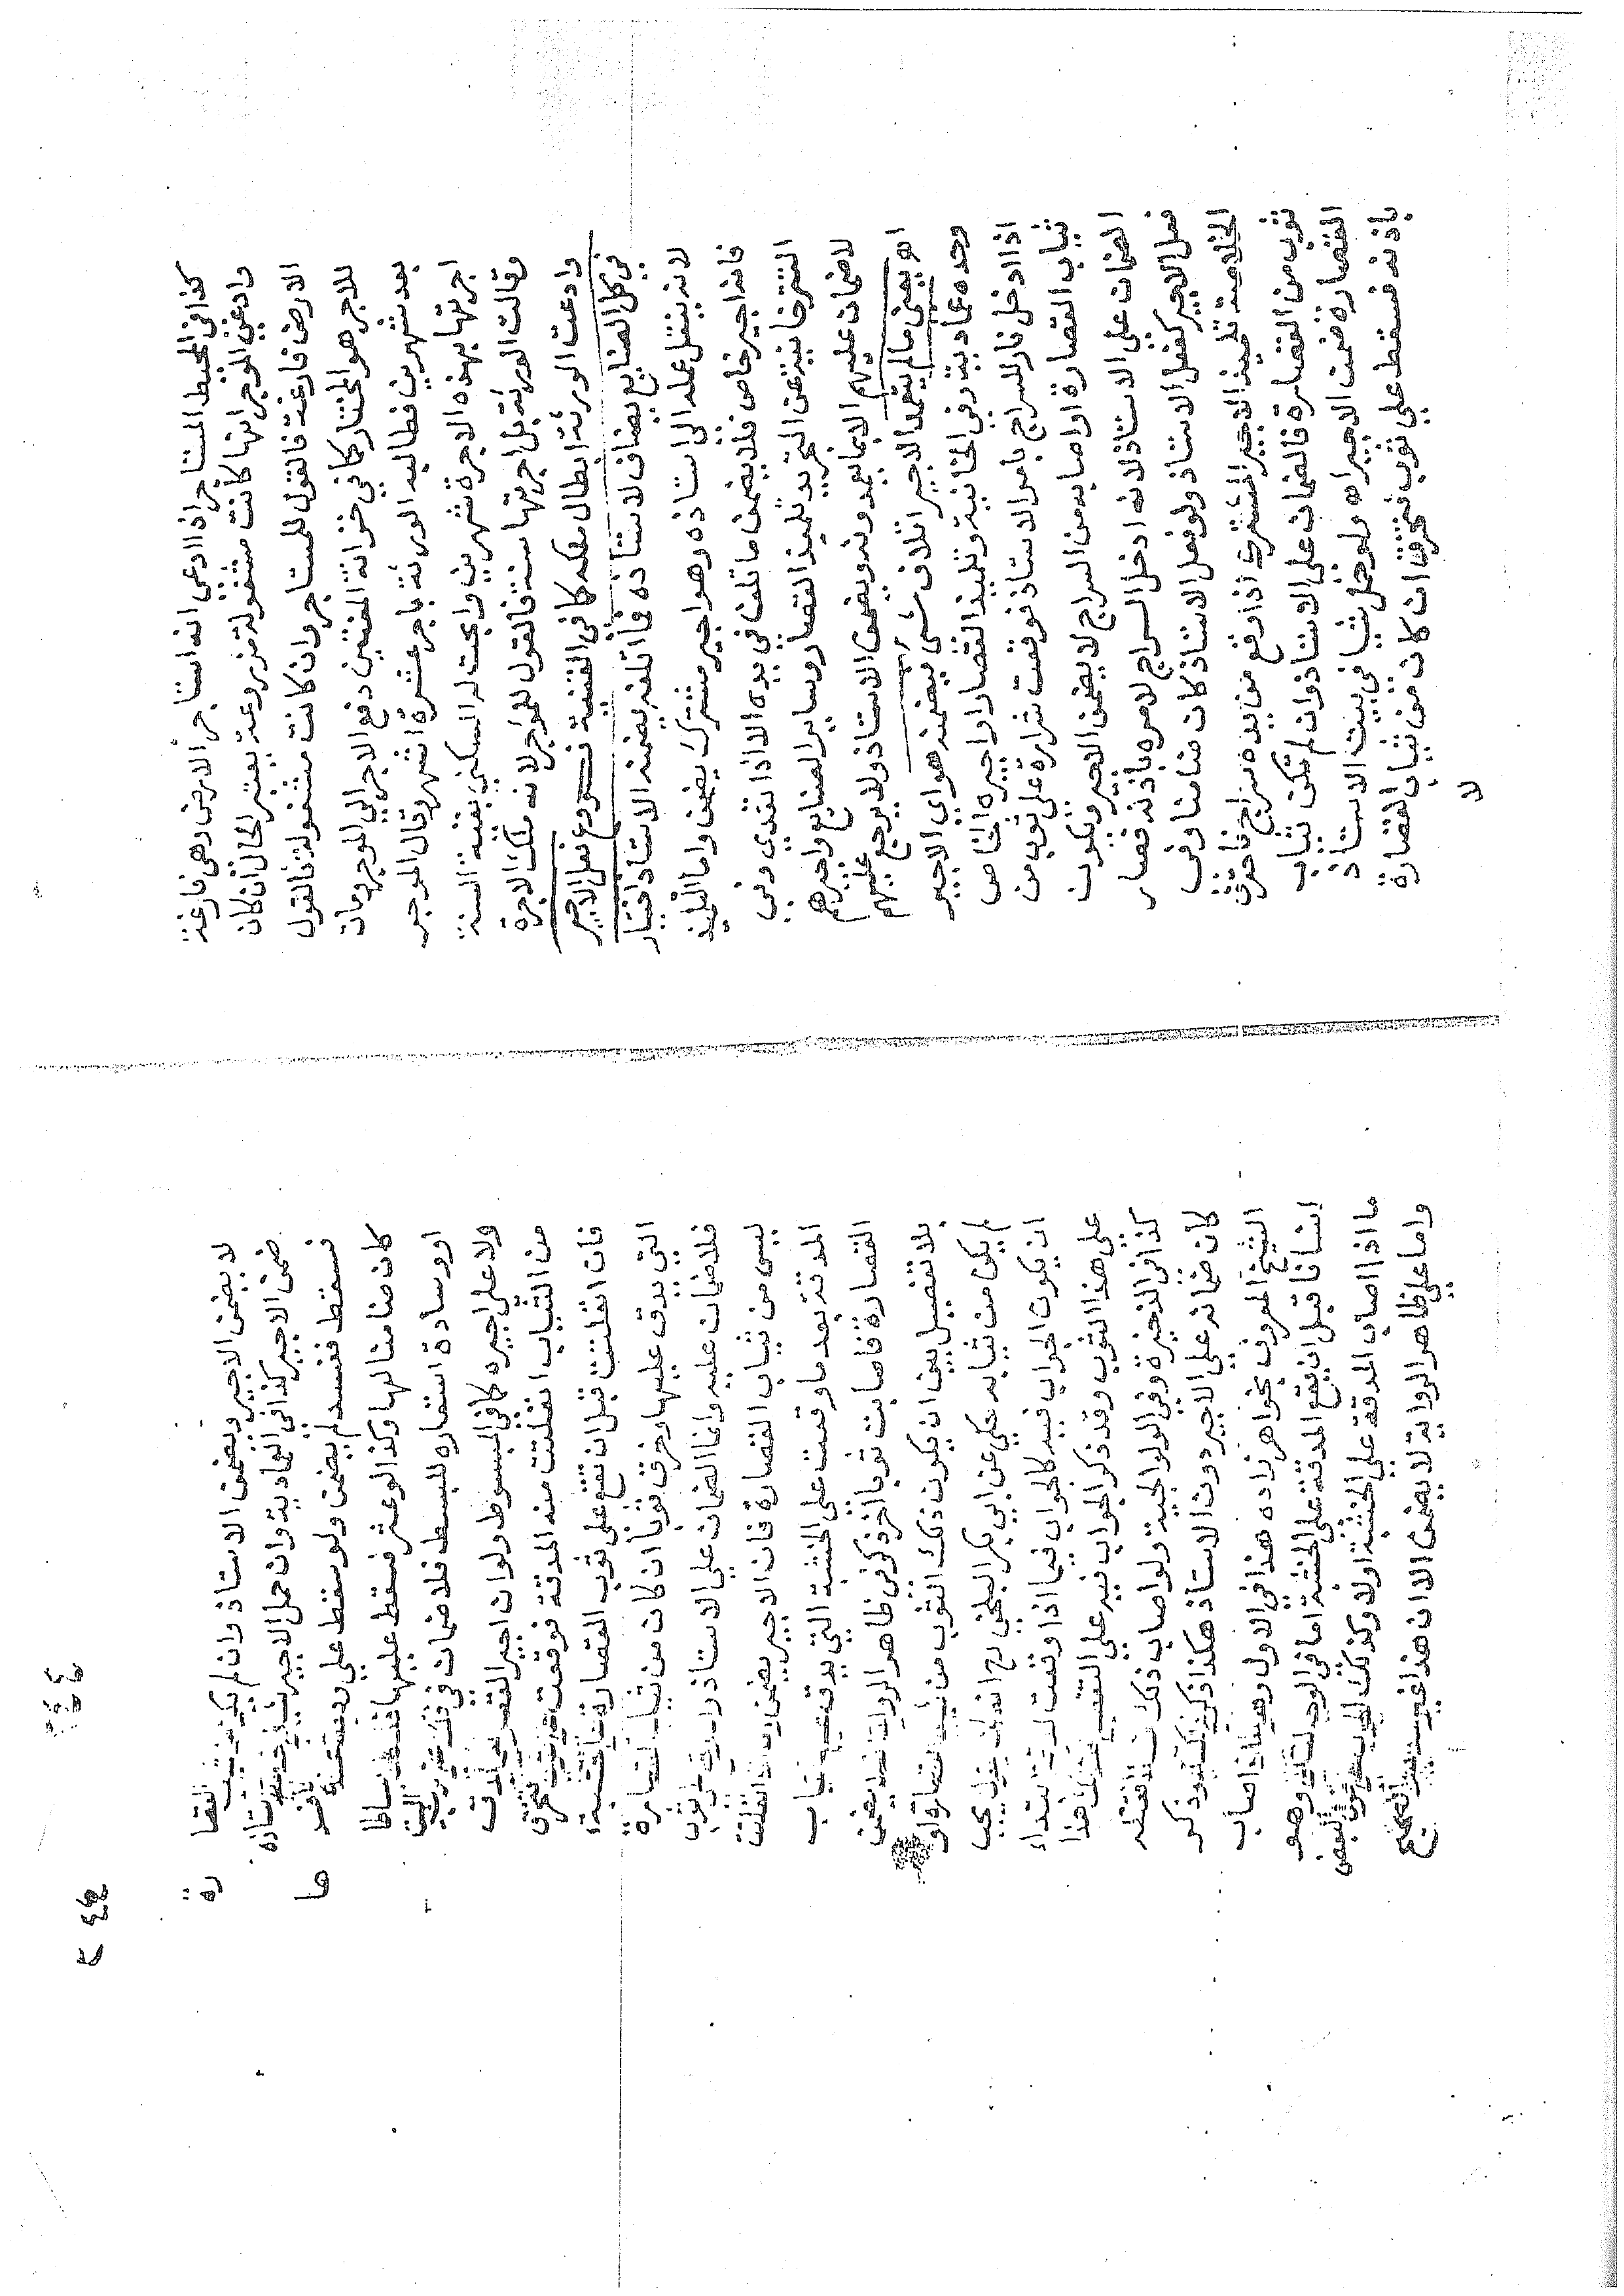 كذا في المحيط المستاجر اذا ادعى انه استاجر الارض وهى فارغة
وادعى الموجر انها كانت مشغولة مزروعة يعتبر الحال ان كان
الارض فارغة فالقول للمستاجر وان كانت مشغولة فالقول
للاجر هو المختار كما في خزانة المفتين دفع الاجر الي الموجر ومات
بعد شهرين فطالبه الورثة باجر عشرة اشهر وقال الموجر
اجرتها بهذه الاجرة شهرين وابحت له السكنى بقية السنة
وقالت الورثة بل اجرتها سنة فالقول للموجر لانه ملك الاجرة
وادعت الورثة ابطال ملكه كما في القنية نوع فعل الاجير
في كل الصنايع يضاف لاستاذه فما اتلفه يضمنه الاستاذ اختيار
لانه ينتقل عمله الى استاذه وهو اجير مشترك يضمن واما التلميذ
فانه اجير خاص فلا يضمن ما تلف في يده الا اذا تعدى وفي
التترخانية عن التجريد تلميذ القصار وساير الصنايع واجيرهم
لا ضمان عليهم الا بما يعدونه ويضمن الاستاذ ولا يرجع عليهم
اهـ يعنى مالم يتعمد الاجير اتلاف شىء فيضمنه هو اى الاجير
وحده عمادية وفي الخانية وتلميذ القصار او اجيره الخاص
اذا ادخل نار للسراج بامر الاستاذ فوقعت شرارة على ثوب من
ثياب القصارة او اصابه من السراج لا يضمن الاجير ويكون
الضمان على الاستاذ لانه ادخل السراج لامره باذنه فصار
فعل الاجير كفعل الاستاذ ولو فعل الاستاذ كان ضامنا وفي
الخلاصة تلميذ الاجير المشترك اذا رفع من يده سراج فاحترق
ثوب من القصارة فالضمان على الاستاذ وان لم تكن ثياب
القصارة ضمن الاجير اهـ ولو حمل شيا في بيت الاستاذ
باذنه فسقط على ثوب فتخرق ان كان من ثياب القصارة
لا
لا يضمن الاجير ويضمن الاستاذ وان لم يكن من ثياب القصارة
ضمن الاجير كذا في العمادية وان حمل الاجير شيا في خدمة استاذه
فسقط ففسد لم يضمن ولو سقط على وديعة عنده فافسدها
كان ضامنا لها وكذا لو عثر فسقط عليها فان كان بساطا
او وسادة استعاره للبسط فلا ضمان في ذلك على رب البيت
ولا على اجيره كما في المبسوط ولو ان اجير القصار فيما يدق
من الثياب انفلتت منه المدقة فوقعت على ثوب فتخرق
فان انفلتت قبل ان تقع على ثوب القصارة على الخشبة
التي يدق عليها وخرق ثوبا ان كان من ثياب القصارة
فلا ضمان عليه وانما الضمان على الاستاذ وان لم يكن الثوب
ليس من ثياب القصارة فان الاجير يضمن وان انفلتت
المدقة بعدما وقعت على الخشبة التي يدق عليها ثياب
القصارة فاصابت ثوبا اخر ذكر في ظاهر الرواية انه يضمن
بلا تفصيل بين ان يكون ذلك الثوب من ثياب القصارة او
لم يكن من ثيابه حكي عن ابي بكر البلخى رح انه كان يقول يجب
ان يكون الجواب فيه كالجواب فيما اذا وقعت المدقة ابتداء
على هذا الثوب وقد ذكر الجواب فيه على التقسيم فكذا هذا
كذا في الذخيرة وفي الولوالجية ولو اصاب ذلك انسانا فقتله
كان ضمانه على الاجير دون الاستاذ هكذا ذكر في الكتب وذكر
الشيخ المعروف بخواهر زاده هذا في الاول وهو ما اذا اصاب
انسانا قبل ان يقع المدقة على الخشبة اما في الوجه الثاني وهو
ما اذا اصاب المدقة على الخشبة اولا وكذلك الجواب عند البعض
واما على ظاهر الرواية لا يضمن الا ان هذا غير سديد الصحيح